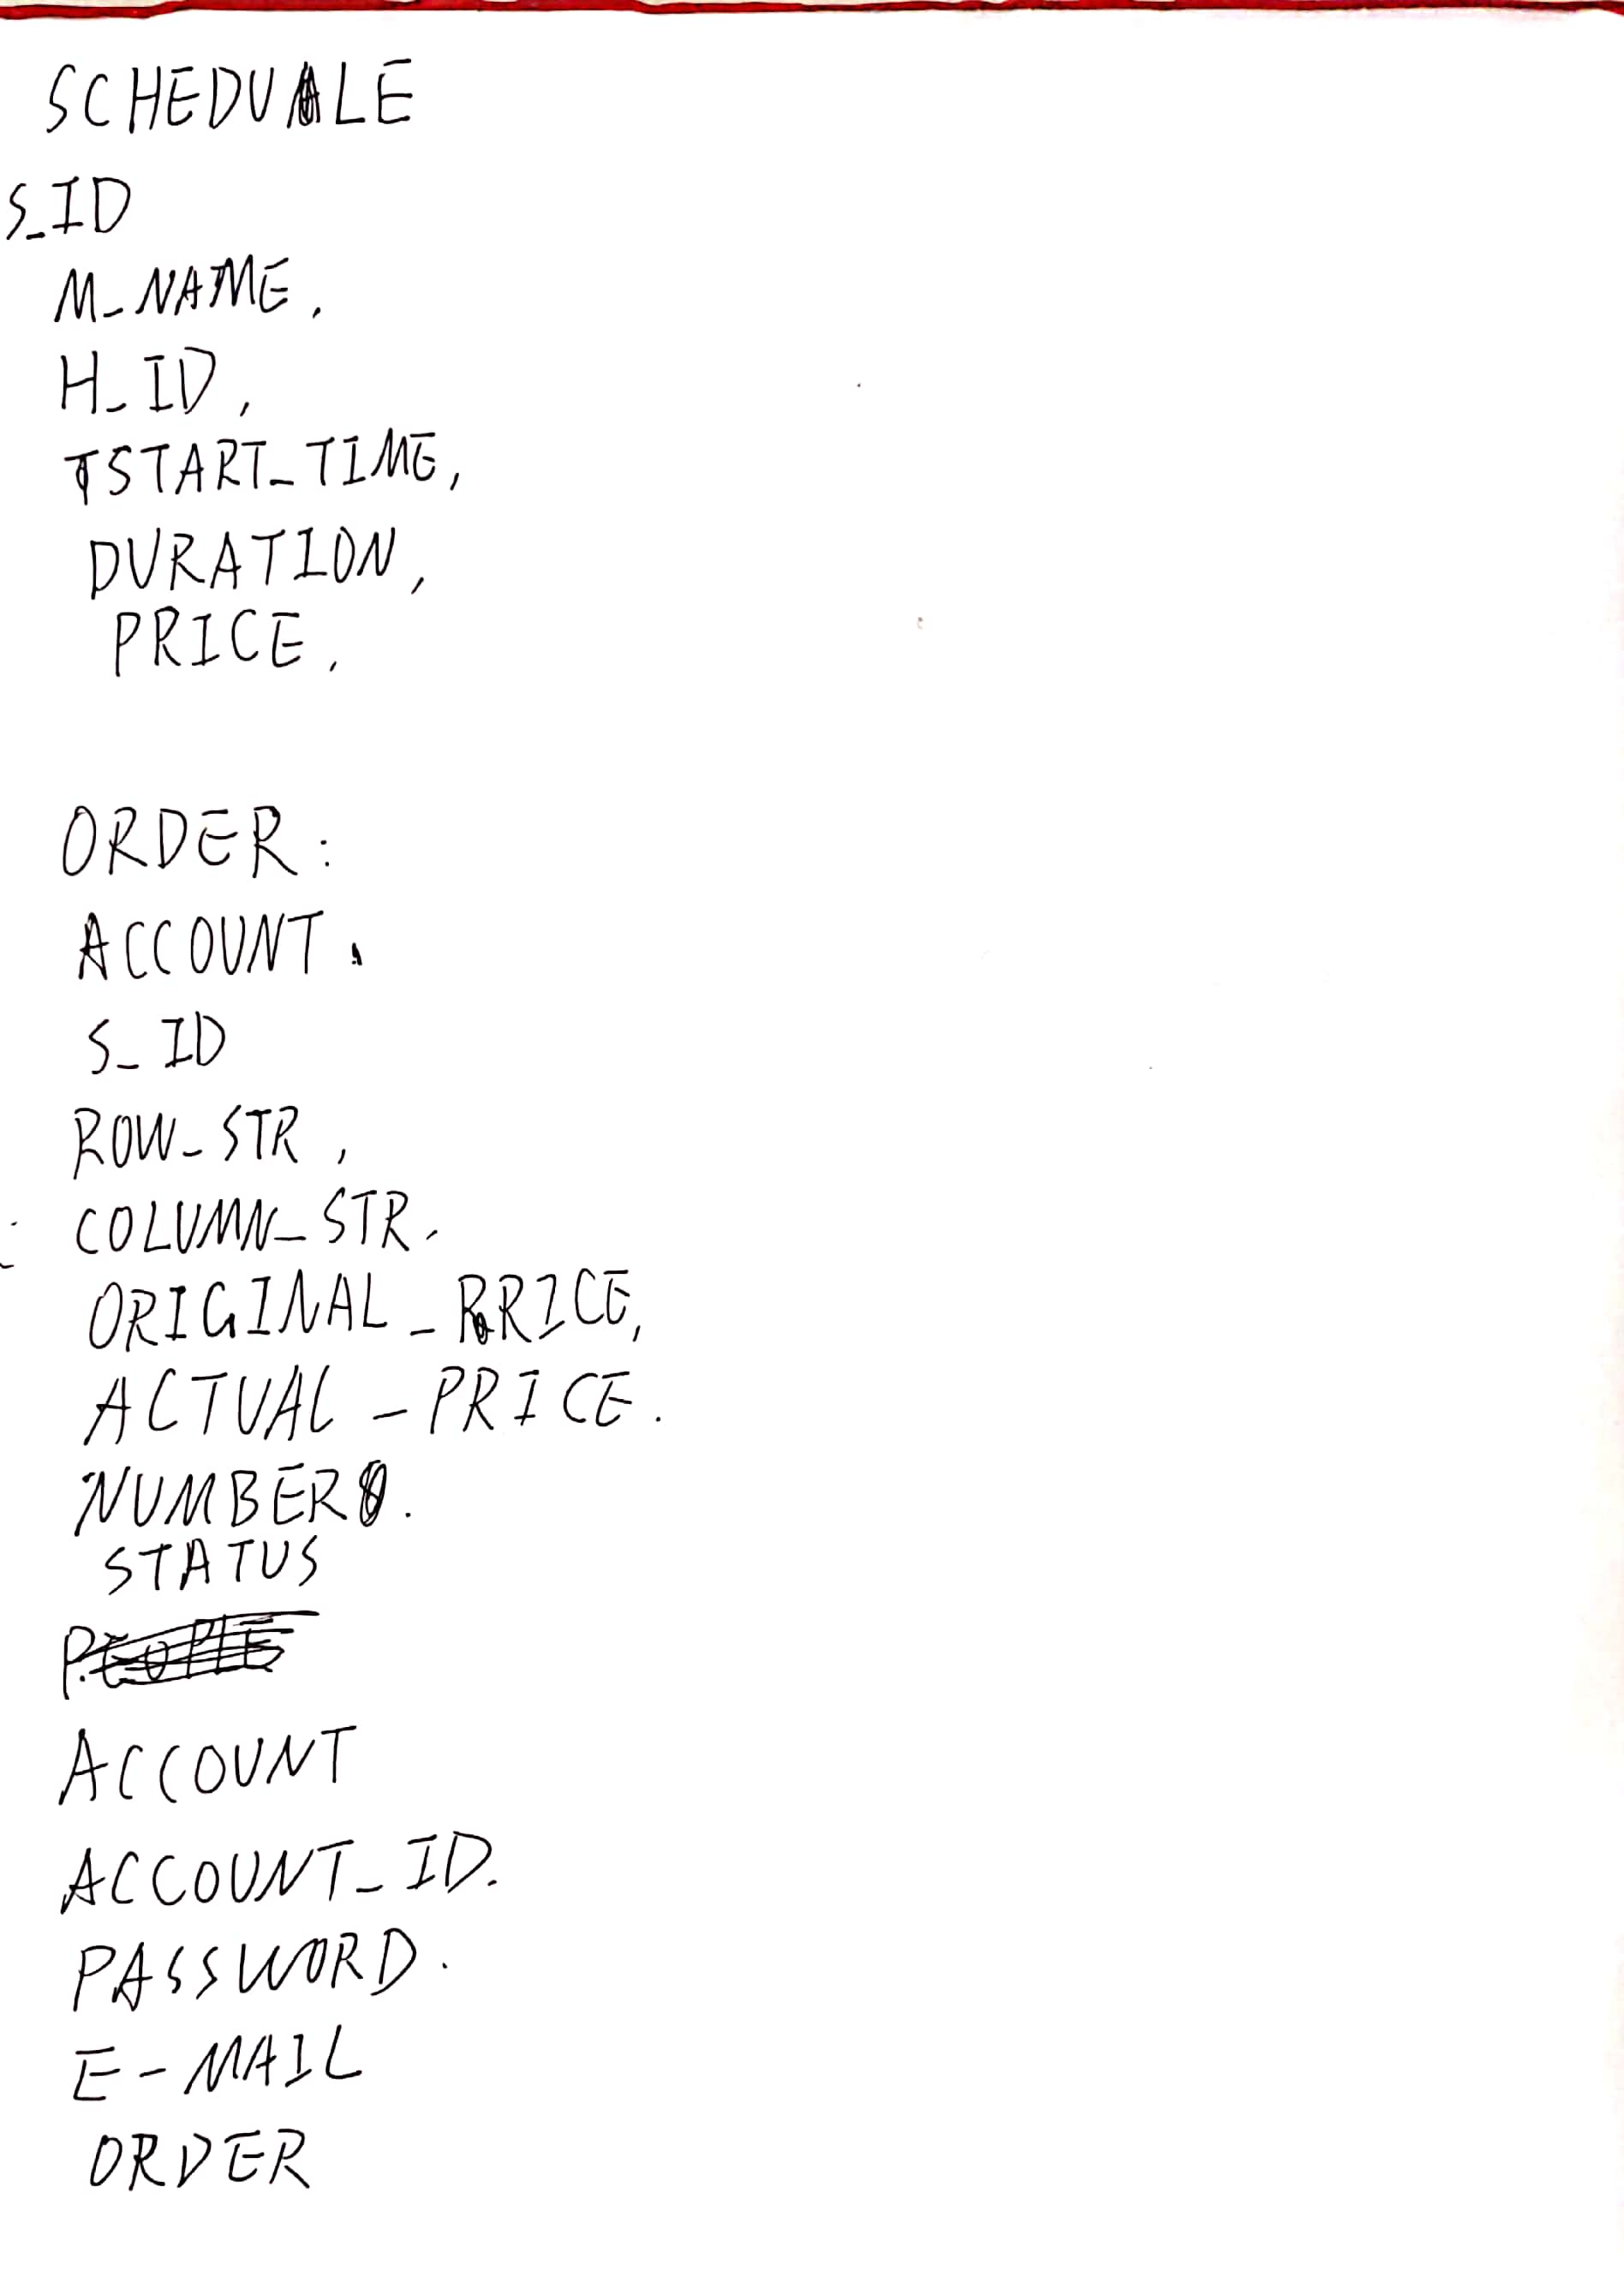 SCHEDULE
S_ID
M_NAME,
H_ID,
START_TIME,
DURATION,
PRICE,
ORDER:
ACCOUNT.
S_ID
ROW_STR,
COLUMN_STR,
ORIGINAL_PRICE,
ACTUAL_PRICE.
NUMBER.
STATUS
ACCOUNT
ACCOUNT_ID.
PASSWORD.
E-MAIL
ORDER